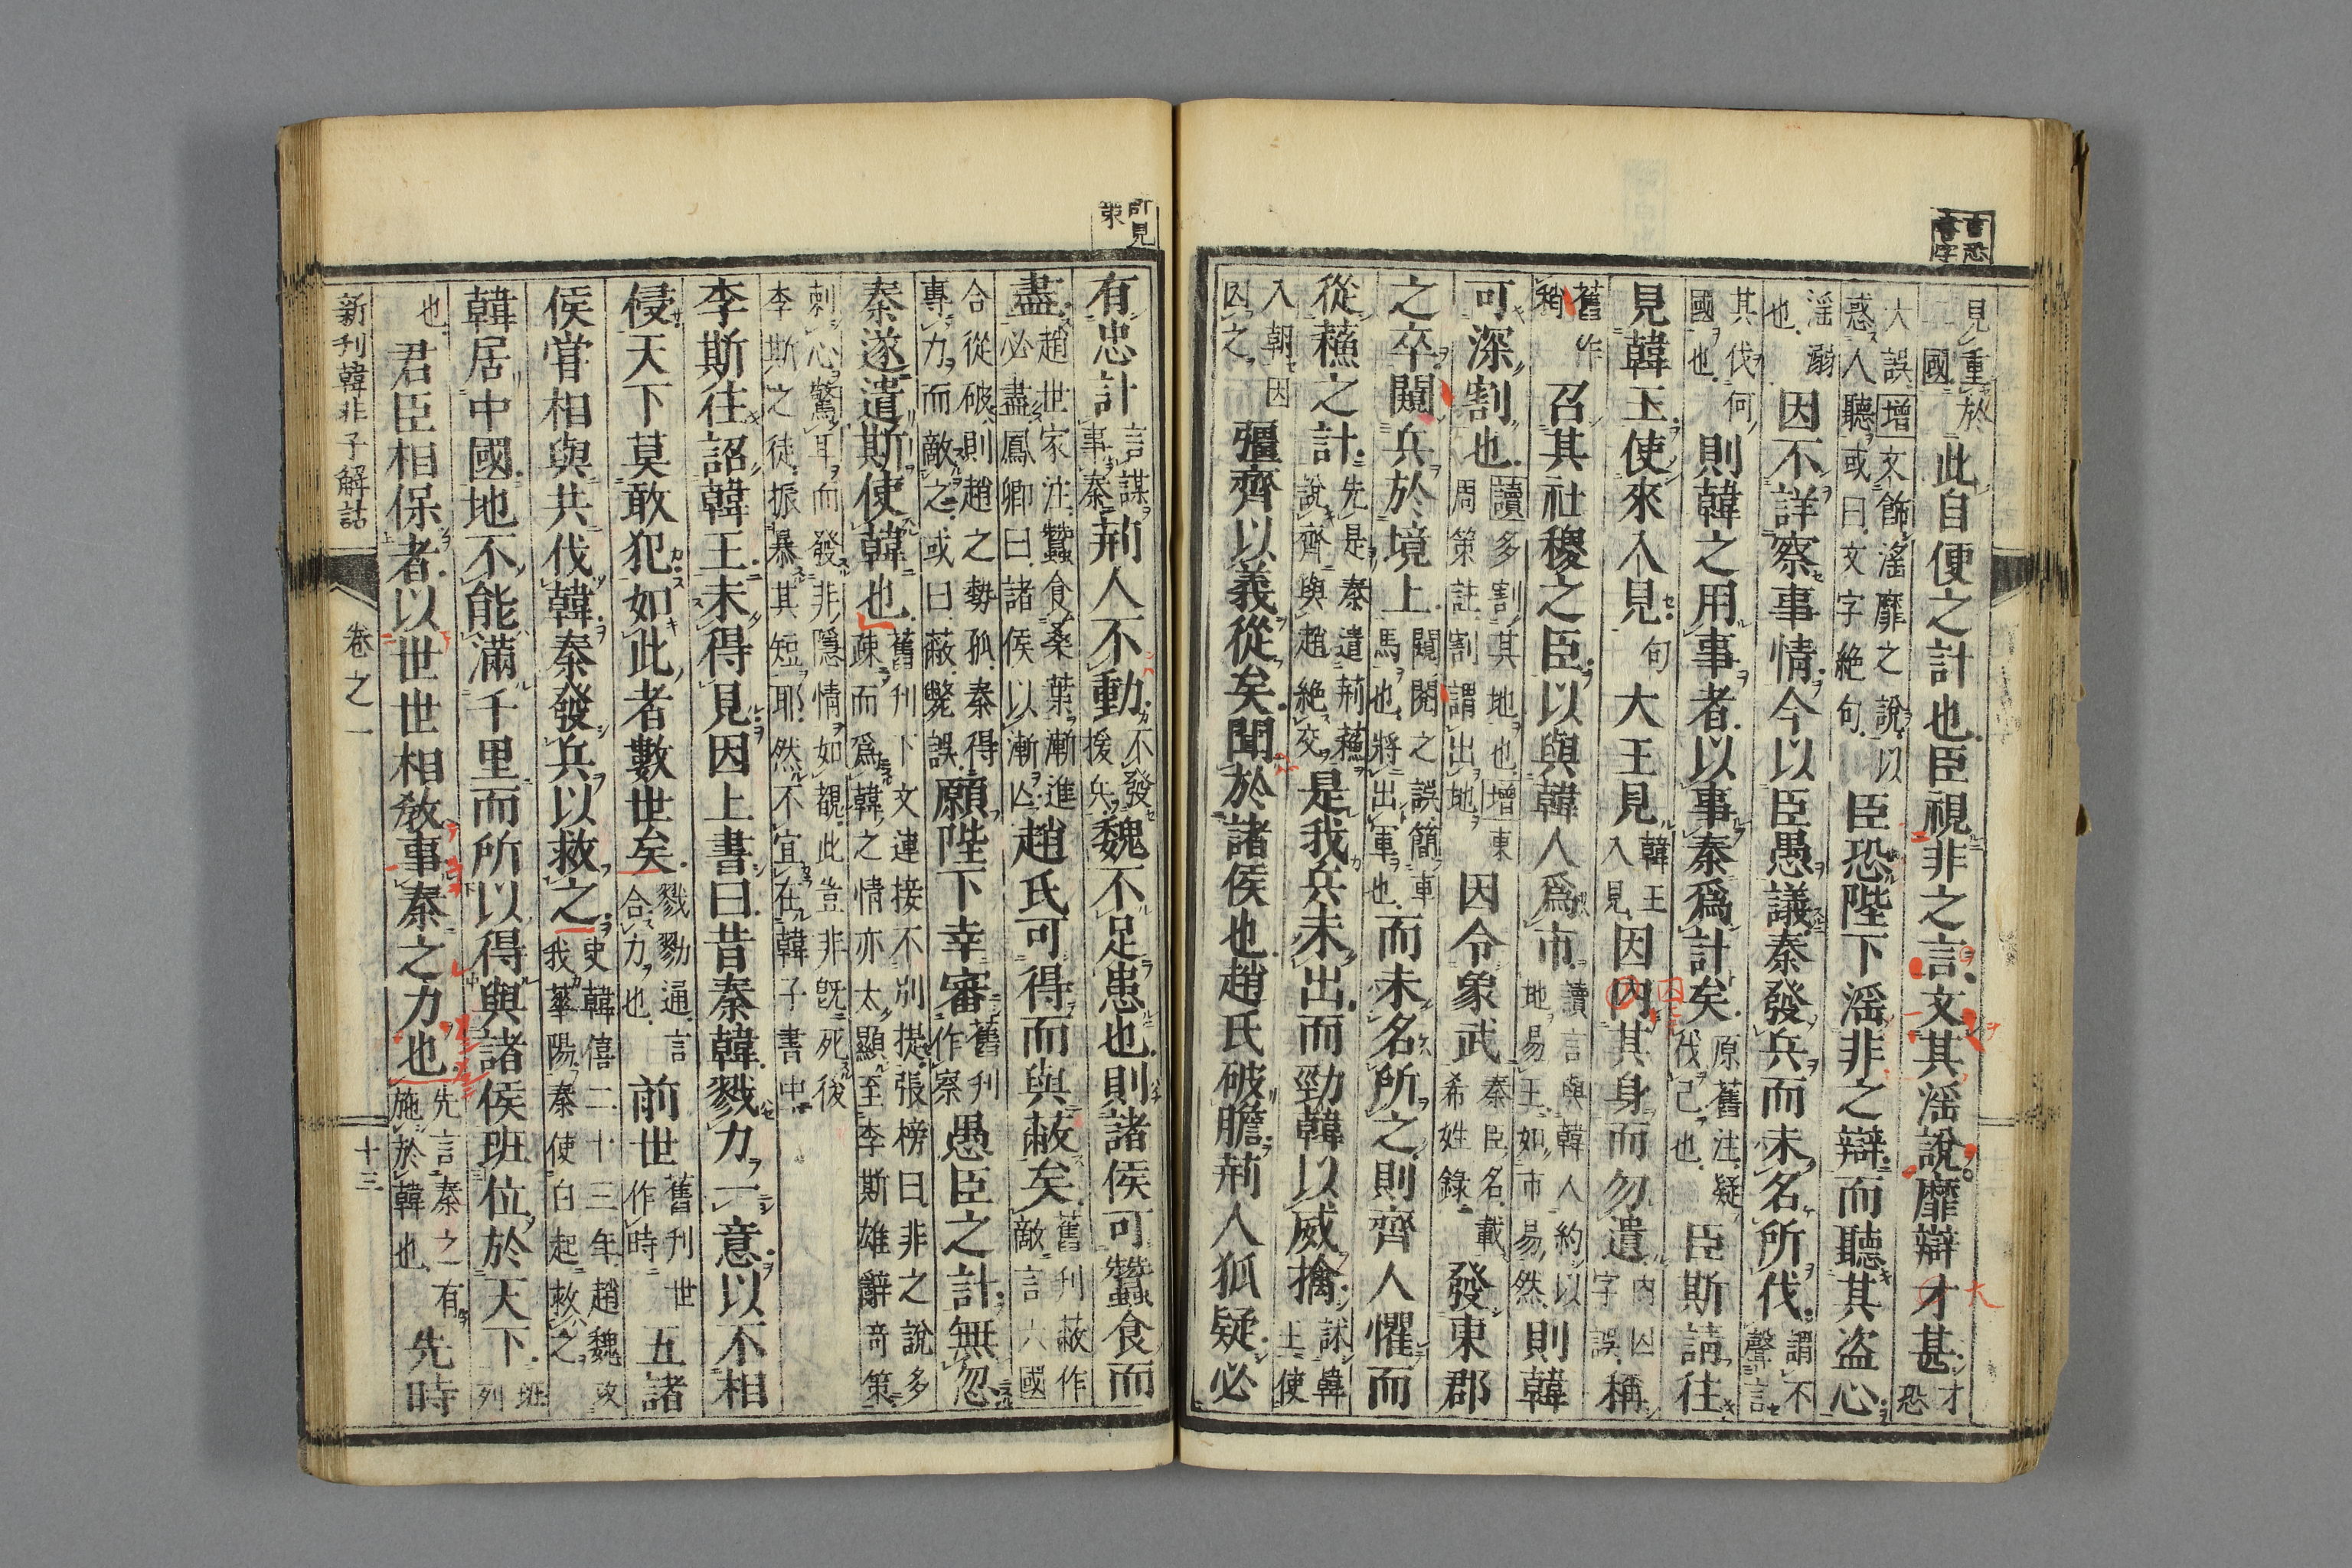 見重於二國此自便之計也臣視非之言文其淫說靡辯才甚才恐
大誤增文飾淫靡之說以惑人聽或曰文字絶句臣恐陛下淫非之辯而聽其盗心
淫溺也因不詳察事情今以臣愚議秦發兵而未名所伐謂不聲言
其伐何國也則韓之用事者以事秦爲計矣原舊注疑伐己也臣斯請往
見韓王使來入見句大王見韓王入見因内其身而勿遣内囚字誤稱
舊作稍召其社稷之臣以與韓人爲市讀言與韓人約以地易王如市易然則韓
可深割也讀多割其地也增東周策註割謂出地因令象武秦臣名載希姓錄發東郡
之卒闚兵於境上闚閱之誤簡車馬也將出軍也而未名所之則齊人懼而
從蘓之計先是秦遣荊蘓說齊與趙絶交是我兵未出而勁韓以威擒訹韓王使
入朝因囚之彊齊以義從矣聞於諸侯也趙氏破膽荊人狐疑必
有忠計言謀事秦荊人不動不發援兵魏不足患也則諸侯可蠶食而
盡趙世家注蠶食桑葉漸進必盡鳳卿曰諸侯以漸亾趙氏可得而與蔽矣舊刊蔽作敵言六國
合從破則趙之勢孤秦得專力而敵之或曰蔽斃誤願陛下幸審舊刊作察愚臣之計無忽
秦遂遣斯使韓也舊刊下文連接不別提張榜曰非之說多疎而爲韓之情亦太顯至李斯雄辭奇策
刺心驚耳而發非隱情如覩此豈非旣死後李斯之徒振暴其短耶然不宜在韓子書中
李斯往詔韓王未得見因上書曰昔秦韓戮力一意以不相
侵天下莫敢犯如此者數世矣戮勠通言合力也前世舊刊世作時五諸
侯甞相與共伐韓秦發兵以救之史韓僖二十三年趙魏攻我華陽秦使白起救之
韓居中國地不能滿千里而所以得與諸侯班位於天下班列
也君臣相保者以世世相敎事秦之力也先言秦之有施於韓也先時
新刊韓非子解詁
卷之一
十三